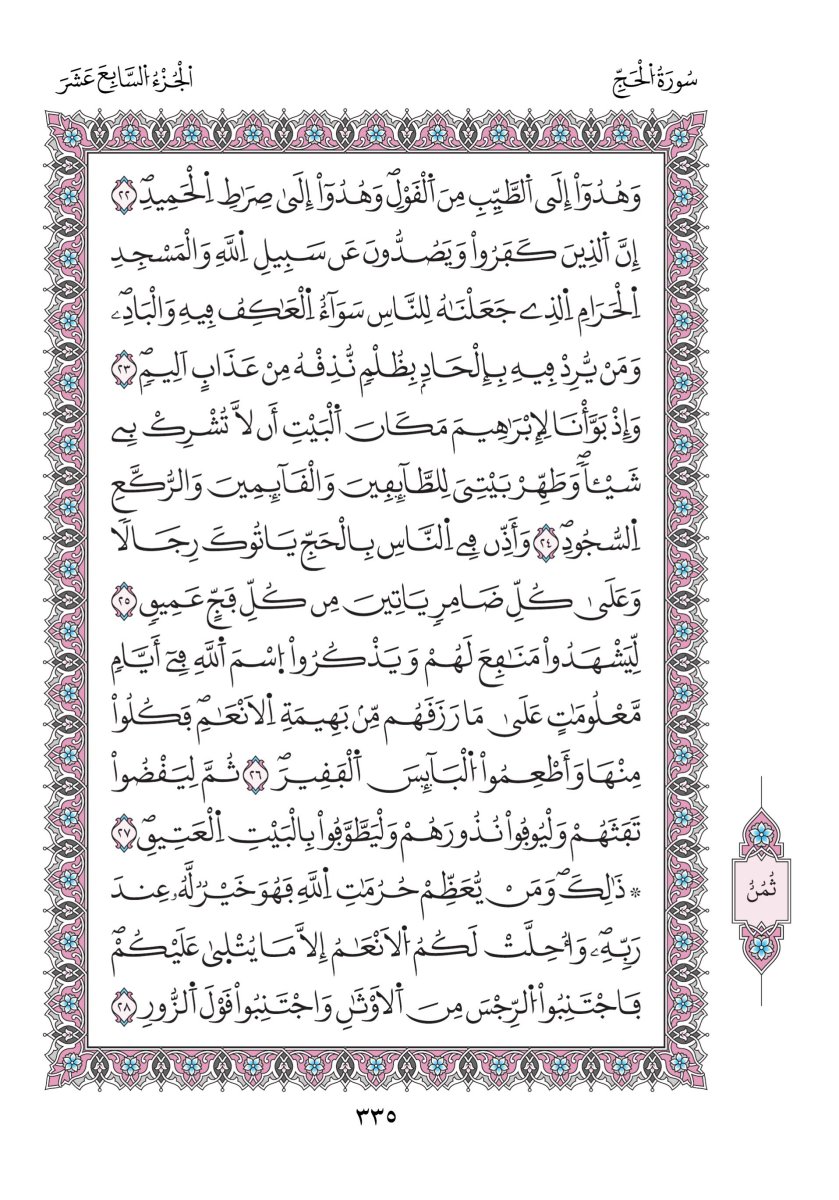 سُورَةُ الْحَجِّ
الْجُزْءُ السَّابِعَ عَشَرَ
وَهُدُوٓاْ إِلَى اَلطَّيِّبِ مِنَ اَلْقَوْلِۖ وَهُدُوٓاْ إِلَىٰ صِرَٰطِ اِلْحَمِيدِۖ ٢٢
إِنَّ اَلذِينَ كَفَرُواْ وَيَصُدُّونَ عَن سَبِيلِ اِللَّهِ وَالْمَسْجِدِ
اِلْحَرَامِ اِلذِے جَعَلْنَٰهُ لِلنَّاسِ سَوَآءٌ اِلْعَٰكِفُ فِيهِ وَالْبَادِۦۖ
وَمَنْ يُّرِدْ فِيهِ بِإِلْحَادِۢ بِظُلْمٖ نُّذِقْهُ مِنْ عَذَابٍ اَلِيمٖۖ ٢٣
وَإِذْ بَوَّأْنَا لِإِبْرَٰهِيمَ مَكَانَ اَلْبَيْتِ أَن لَّا تُشْرِكْ بِے
شَيْـٔاٗۖ وَطَهِّرْ بَيْتِيَ لِلطَّآئِفِينَ وَالْقَآئِمِينَ وَالرُّكَّعِ
اِلسُّجُودِۖ ٢٤ وَأَذِّن فِے اِلنَّاسِ بِالْحَجِّ يَاتُوكَ رِجَالاٗ
وَعَلَىٰ كُلِّ ضَامِرٖ يَاتِينَ مِن كُلِّ فَجٍّ عَمِيقٖ ٢٥
لِّيَشْهَدُواْ مَنَٰفِعَ لَهُمْ وَيَذْكُرُواْ اُسْمَ اَللَّهِ فِےٓ أَيَّامٖ
مَّعْلُومَٰتٍ عَلَىٰ مَا رَزَقَهُم مِّنۢ بَهِيمَةِ اِلَانْعَٰمِۖ فَكُلُواْ
مِنْهَا وَأَطْعِمُواْ اُلْبَآئِسَ اَلْفَقِيرَۖ ٢٦ ثُمَّ لِيَقْضُواْ
تَفَثَهُمْ وَلْيُوفُواْ نُذُورَهُمْ وَلْيَطَّوَّفُواْ بِالْبَيْتِ اِلْعَتِيقِۖ ٢٧
* ذَٰلِكَۖ وَمَنْ يُّعَظِّمْ حُرُمَٰتِ اِللَّهِ فَهُوَ خَيْرٞ لَّهُۥ عِندَ
رَبِّهِۦۖ وَأُحِلَّتْ لَكُمُ اُلَانْعَٰمُ إِلَّا مَا يُتْلَىٰ عَلَيْكُمْۖ
فَاجْتَنِبُواْ اُلرِّجْسَ مِنَ اَلَاوْثَٰنِ وَاجْتَنِبُواْ قَوْلَ اَلزُّورِ ٢٨
ثُمُنُ
٣٣٥